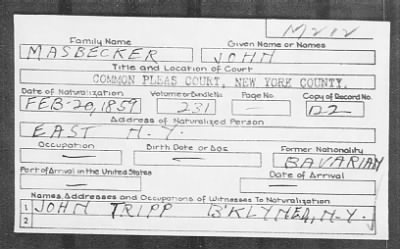 M212
Family Name Given Name or Names
MASBECKER JOHN
Title and Location of Court
COMMON PLEAS COURT, NEW YORK COUNTY.
Date of Naturalization Volume or Bundle No. Page No. Copy of Record No.
FEB-20,1859 231 — 122
Address of Naturalized Person
EAST N.Y.
Occupation Birth Date or Age Former Nationality
— — BAVARIAN
Port of Arrival in the United States Date of Arrival
— —
Names, Addresses and Occupations of Witnesses To Naturalization
1 JOHN TRIPP B'KLYN, N.Y.
2